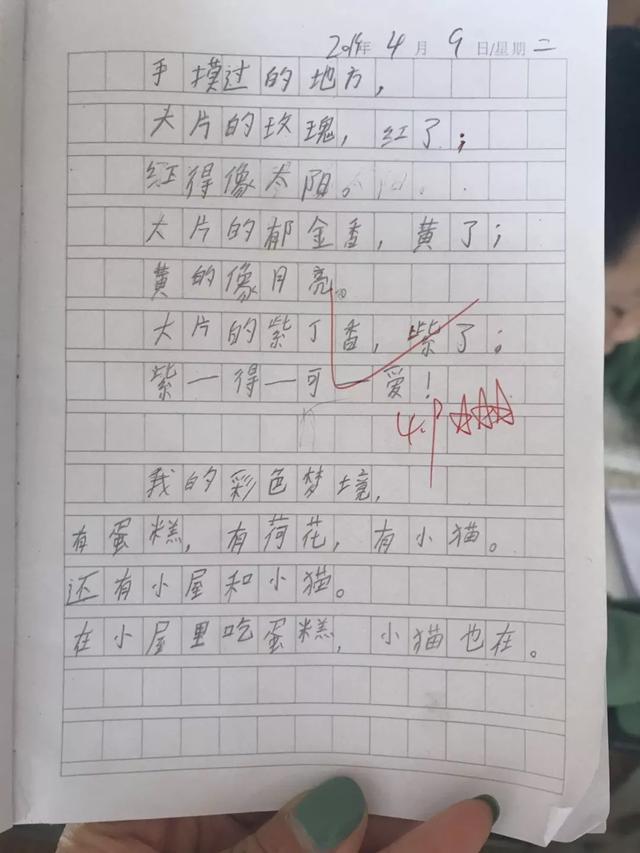 2019年 4 月 9 日/星期 二
手摸过的地方，
大片的玫瑰，红了；
红得像太阳。
大片的郁金香，黄了；
黄的像月亮。
大片的紫丁香，紫了；
紫一得一可一爱！
4.9
我的彩色梦境，
有蛋糕，有荷花，有小猫。
还有小屋和小猫。
在小屋里吃蛋糕，小猫也在。